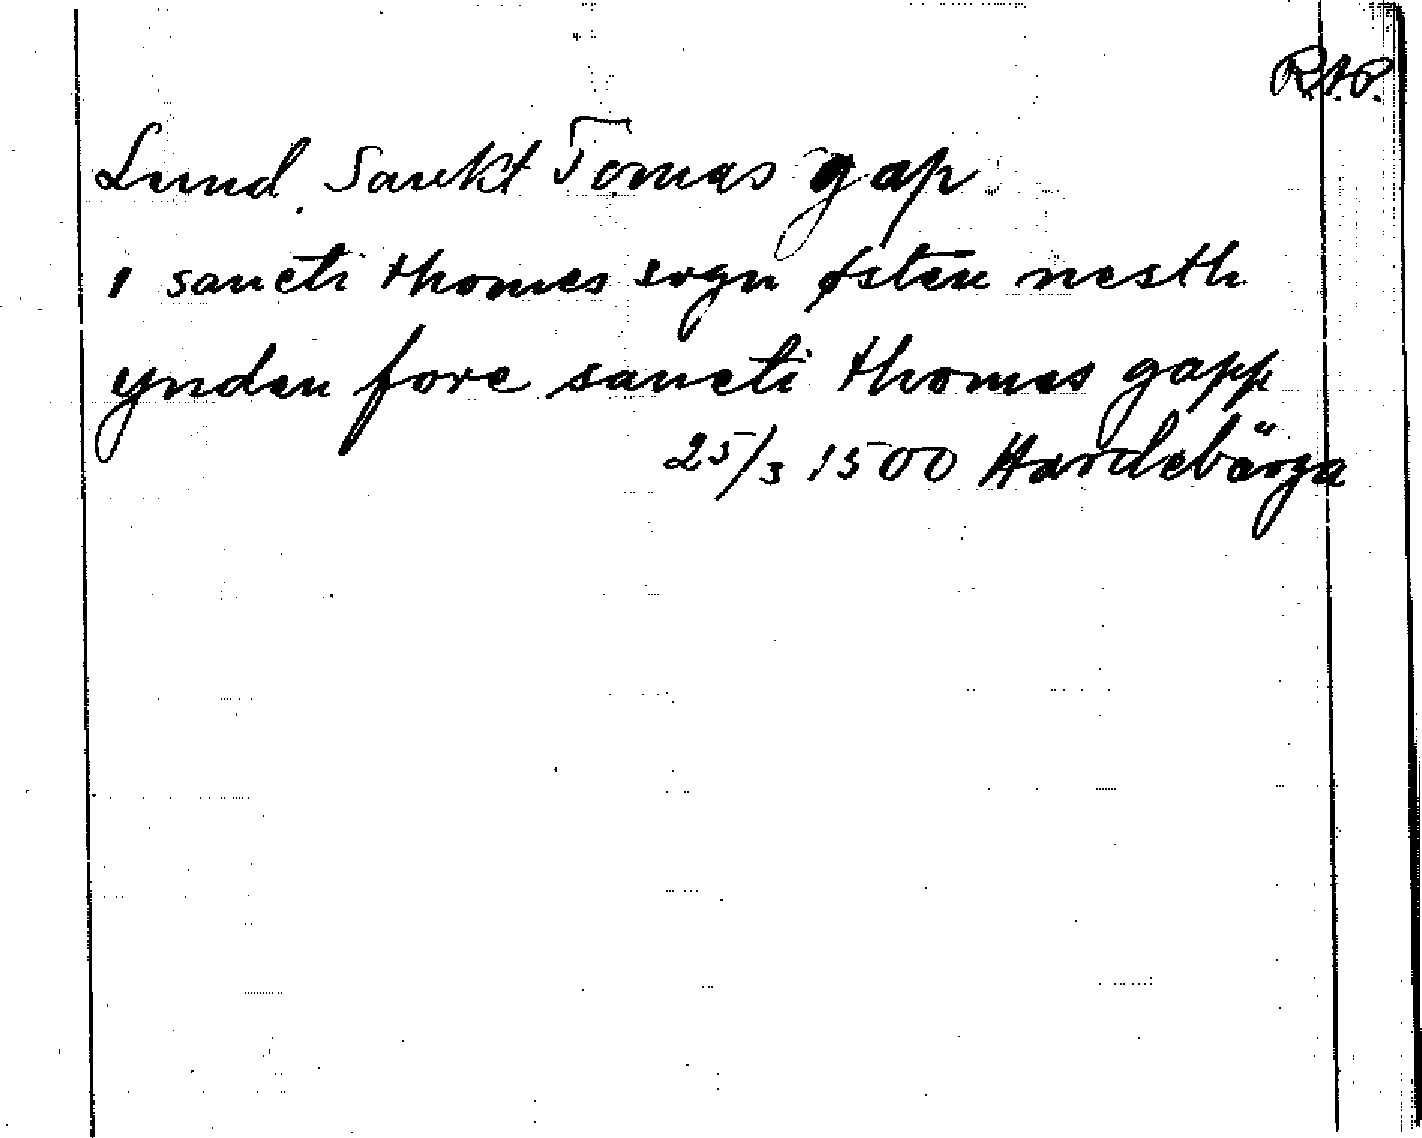 R.A.P.
Lund. Sankt Tomas gap
i sancti thomes sogn østen nesth
ynden fore sancti thomes gapp
25/3 1500 Hardebärga